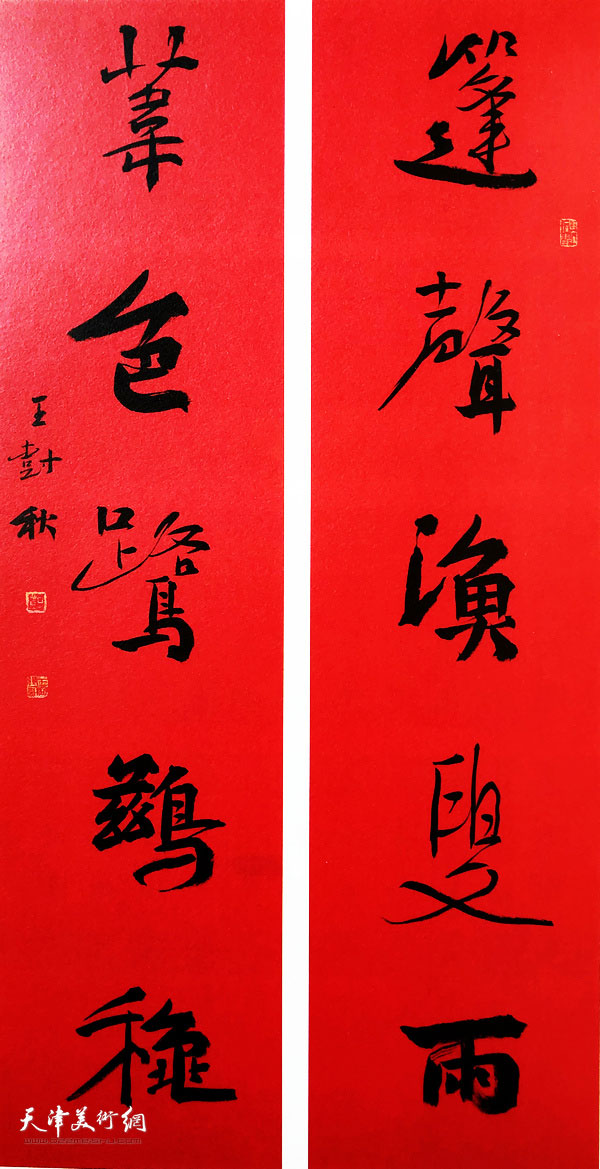 篷聲漁叟雨
葦色鷺鷥穐
王尌秋
天津美術網